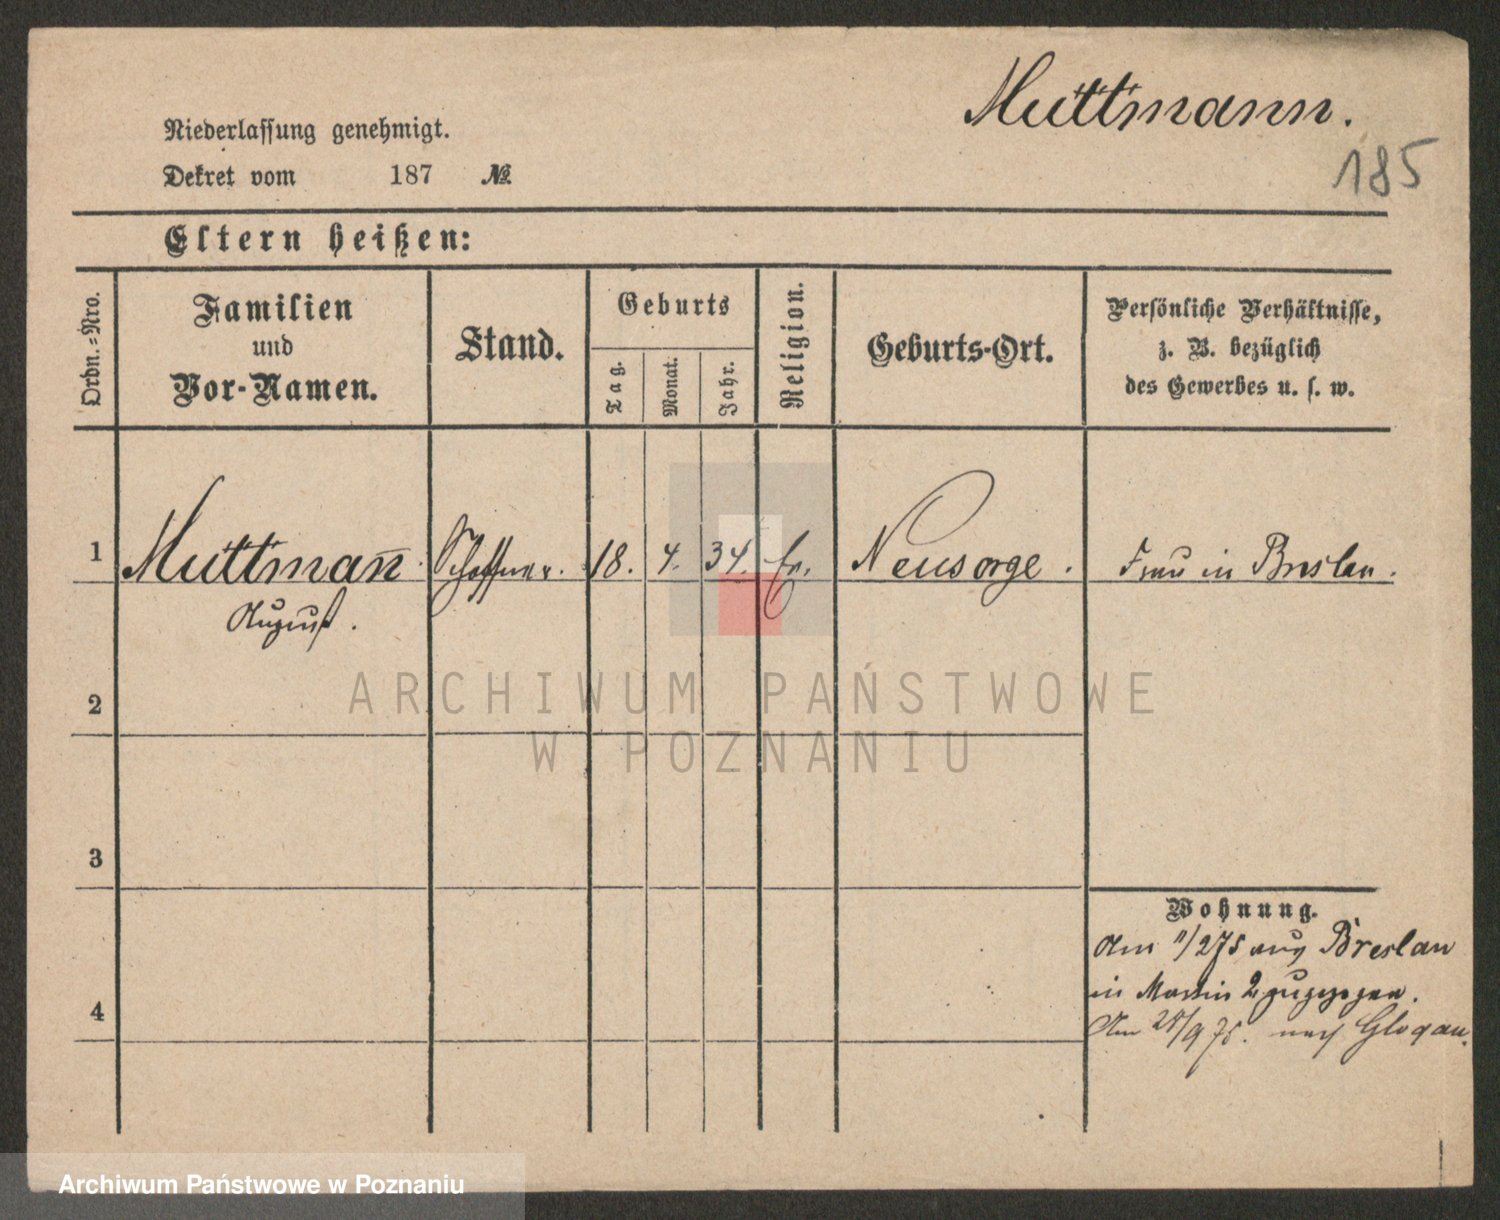 Muttmann.
185
Niederlassung genehmigt.
Dekret vom 187 №
Eltern heißen:
Ordn.=Nro.
Familien
und
Vor-Namen.
Stand.
Geburts
Tag.
Monat.
Jahr.
Religion.
Geburts-Ort.
Persönliche Verhältnisse,
z. B. bezüglich
des Gewerbes u. s. w.
1 Muttman̅ Schaffner. 18. 4. 34. Ev. Neusorge. Frau in Breslau.
August.
ARCHIWUM PAŃSTWOWE
W POZNANIU
2
3
4
Wohnung.
Am 11/2 75 aus Breslau
in Martin 2 zugezogen.
Am /9 75. nach Glogau.
Archiwum Państwowe w Poznaniu